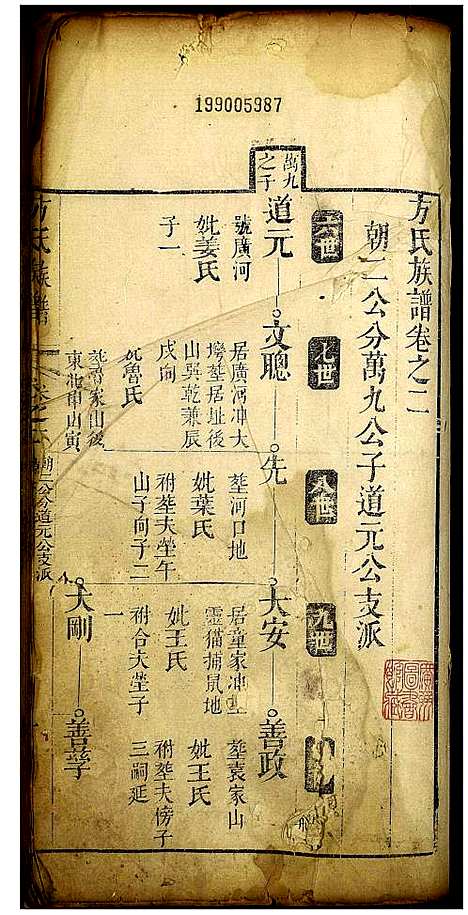 199005987
方氏族譜卷之二
朝二公分萬九公子道元公支派
六世
七世
八世
九世
萬九之子
道元
文聰
先
大安
善政
號廣河
妣姜氏
子一
居廣河冲大
塆塟居址後
山巽乾兼辰
戌向
妣魯氏
塟魯家山後
東北申山寅
塟河口地
妣葉氏
祔塟夫塋午
山子向子二
居童家冲
靈猫捕鼠地
妣王氏
祔合夫塋子
一
塟袁家山
妣王氏
祔塟夫傍子
三嗣延
大剛
善學
方氏族譜
卷之二
朝二公分道元公支派